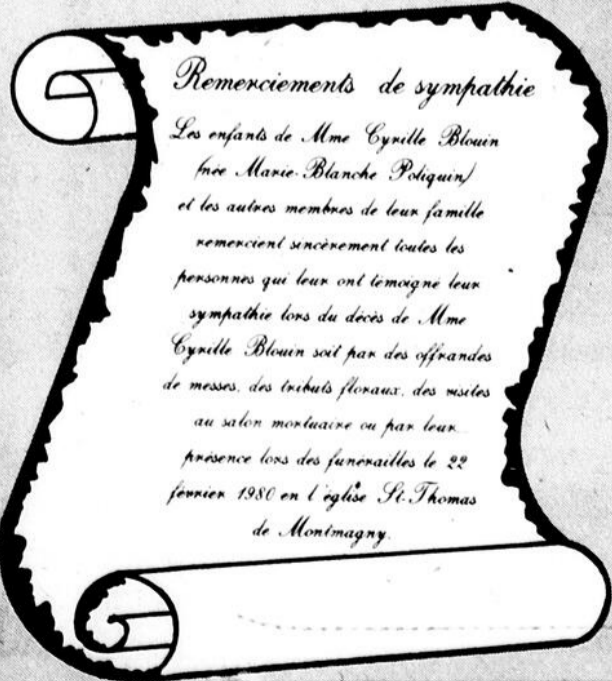 Remerciements de sympathie
Les enfants de Mme Cyrille Blouin
(née Marie-Blanche Poliquin)
et les autres membres de leur famille
remercient sincèrement toutes les
personnes qui leur ont témoigné leur
sympathie lors du décès de Mme
Cyrille Blouin soit par des offrandes
de messes, des tributs floraux, des visites
au salon mortuaire ou par leur
présence lors des funérailles le 22
février 1980 en l'église St-Thomas
de Montmagny.